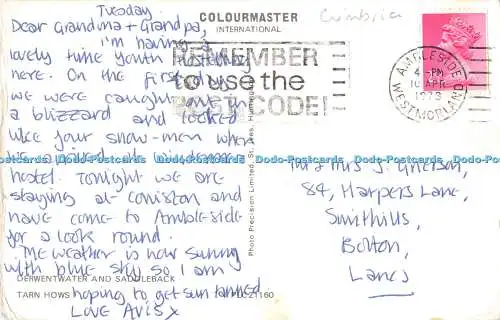 Tuesday
Dear Grandma + Grandpa,
I'm having a
lovely time Youth Hostelling
here. On the first day
we were caught out in
a blizzard and looked
like four snow-men when
we arrived at Windermere
hostel. Tonight we are
staying at Coniston and
have come to Ambleside
for a look round.
The weather is now sunny
with blue sky so I am
hoping to get sun tanned
Love Avis x
COLOURMASTER
INTERNATIONAL
Cumbria
REMEMBER
to use the
POST CODE!
AMBLESIDE
4 - PM
10 APR
1973
WESTMORLAND
Photo Precision Limited, St. Ives, Huntingdon
Mr & Mrs J. Grierson,
84, Harpers Lane,
Smithills,
Bolton,
Lancs
DERWENTWATER AND SADDLEBACK
TARN HOWS